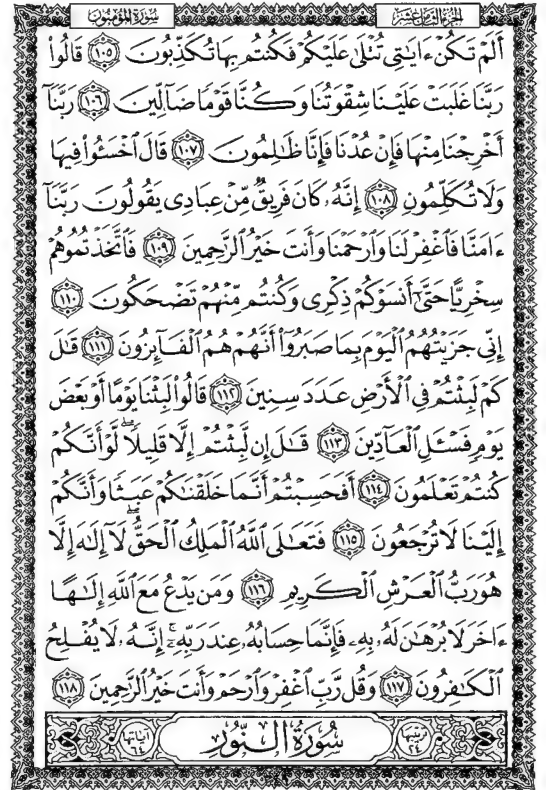 الجزء الثامن عشر سورة المؤمنون
أَلَمْ تَكُنْ ءَايَٰتِى تُتْلَىٰ عَلَيْكُمْ فَكُنتُم بِهَا تُكَذِّبُونَ ١٠٥ قَالُوا۟
رَبَّنَا غَلَبَتْ عَلَيْنَا شِقْوَتُنَا وَكُنَّا قَوْمًا ضَآلِّينَ ١٠٦ رَبَّنَآ
أَخْرِجْنَا مِنْهَا فَإِنْ عُدْنَا فَإِنَّا ظَٰلِمُونَ ١٠٧ قَالَ ٱخْسَـُٔوا۟ فِيهَا
وَلَا تُكَلِّمُونِ ١٠٨ إِنَّهُۥ كَانَ فَرِيقٌ مِّنْ عِبَادِى يَقُولُونَ رَبَّنَآ
ءَامَنَّا فَٱغْفِرْ لَنَا وَٱرْحَمْنَا وَأَنتَ خَيْرُ ٱلرَّٰحِمِينَ ١٠٩ فَٱتَّخَذْتُمُوهُمْ
سِخْرِيًّا حَتَّىٰٓ أَنسَوْكُمْ ذِكْرِى وَكُنتُم مِّنْهُمْ تَضْحَكُونَ ١١٠
إِنِّى جَزَيْتُهُمُ ٱلْيَوْمَ بِمَا صَبَرُوٓا۟ أَنَّهُمْ هُمُ ٱلْفَآئِزُونَ ١١١ قَٰلَ
كَمْ لَبِثْتُمْ فِى ٱلْأَرْضِ عَدَدَ سِنِينَ ١١٢ قَالُوا۟ لَبِثْنَا يَوْمًا أَوْ بَعْضَ
يَوْمٍ فَسْـَٔلِ ٱلْعَآدِّينَ ١١٣ قَٰلَ إِن لَّبِثْتُمْ إِلَّا قَلِيلًا ۖ لَّوْ أَنَّكُمْ
كُنتُمْ تَعْلَمُونَ ١١٤ أَفَحَسِبْتُمْ أَنَّمَا خَلَقْنَٰكُمْ عَبَثًا وَأَنَّكُمْ
إِلَيْنَا لَا تُرْجَعُونَ ١١٥ فَتَعَٰلَى ٱللَّهُ ٱلْمَلِكُ ٱلْحَقُّ ۖ لَآ إِلَٰهَ إِلَّا
هُوَ رَبُّ ٱلْعَرْشِ ٱلْكَرِيمِ ١١٦ وَمَن يَدْعُ مَعَ ٱللَّهِ إِلَٰهًا
ءَاخَرَ لَا بُرْهَٰنَ لَهُۥ بِهِۦ فَإِنَّمَا حِسَابُهُۥ عِندَ رَبِّهِۦٓ ۚ إِنَّهُۥ لَا يُفْلِحُ
ٱلْكَٰفِرُونَ ١١٧ وَقُل رَّبِّ ٱغْفِرْ وَٱرْحَمْ وَأَنتَ خَيْرُ ٱلرَّٰحِمِينَ ١١٨
ترتيبها ٢٤ سُورَةُ النُّورِ آياتها ٦٤